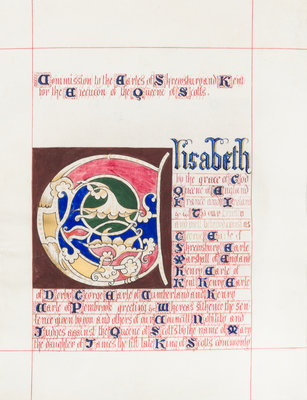 Commission to the Earles of Shrewsbury and Kent
for the Execucon of the Queene of Scotts.
Elisabeth
by the grace of God
Queene of England
France and Ireland
&c to our
and
George Earle of
Shrewsbury Earle
Marshall of England
Henry Earle of
Kent Henry Earle
of Derby George Earle of Cumberland and Henry
Earle of Pembrook greeting &c Whereas sithence the sen-
tence given by you and others of our Councill Nobility and
Judges against the Queene of Scotts by the name of Mary
the daughter of James the fift late King of Scotts commonly